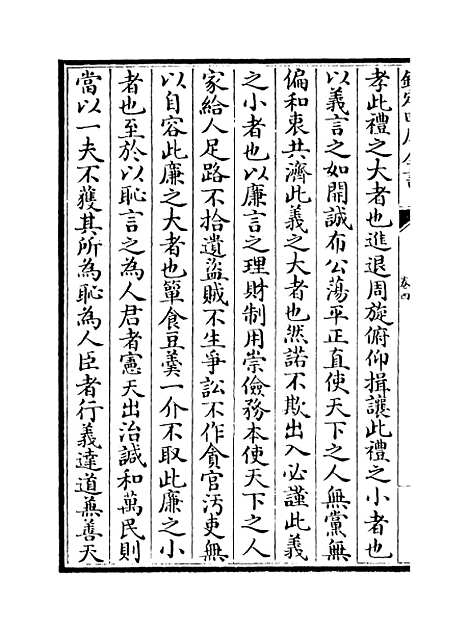 欽定四庫全書
卷四
孝此禮之大者也進退周旋俯仰揖讓此禮之小者也
以義言之如開誠布公蕩平正直使天下之人無黨無
偏和衷共濟此義之大者也然諾不欺出入必謹此義
之小者也以廉言之理財制用崇儉務本使天下之人
家給人足路不拾遺盜賊不生爭訟不作貪官汚吏無
以自容此廉之大者也簞食豆羹一介不取此廉之小
者也至於以恥言之為人君者憲天出治諴和萬民則
當以一夫不獲其所為恥為人臣者行義達道蕪善天